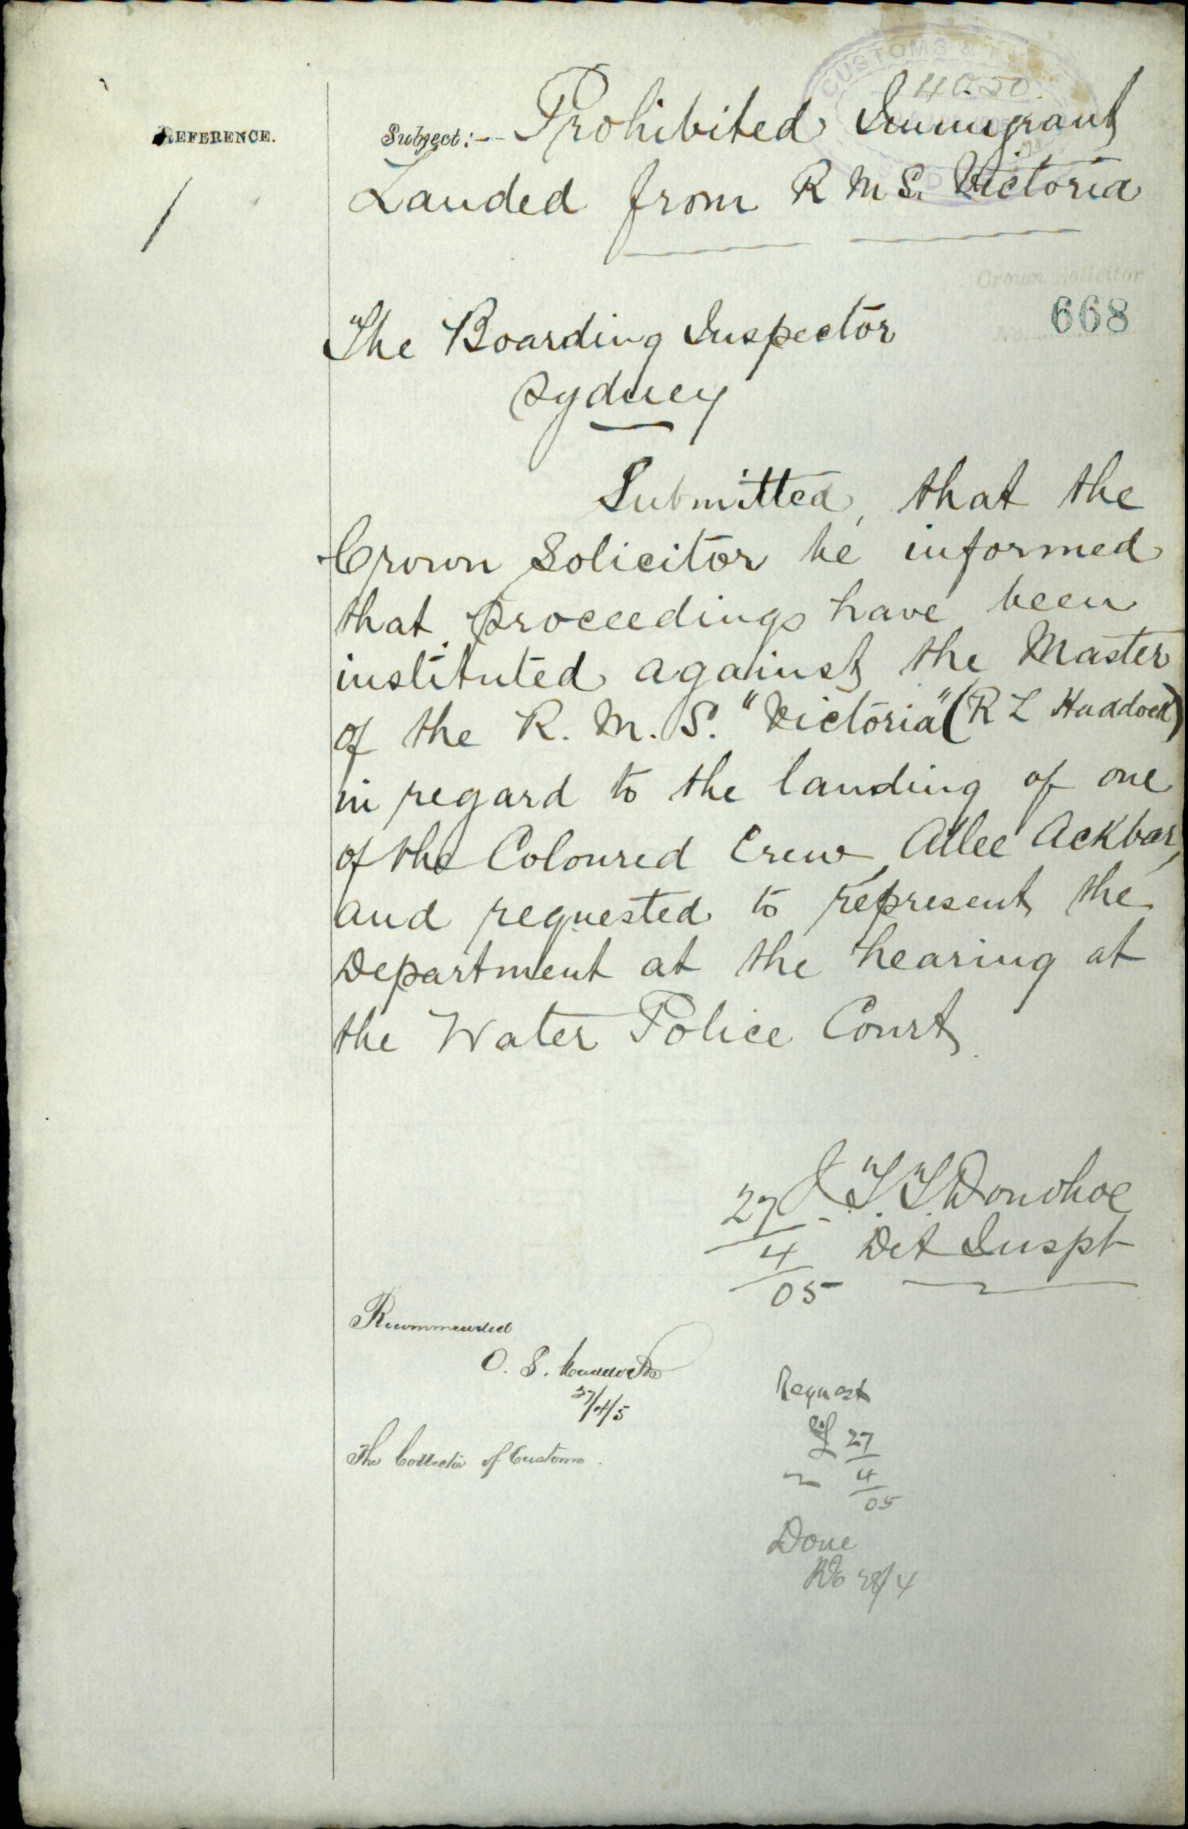 CUSTOMS &
4050
REFERENCE.
Subject:— Prohibited Immigrant
Landed from R M S. Victoria
Crown Solicitor
668
The Boarding Inspector
Sydney
Submitted, that the
Crown Solicitor be informed
that proceedings have been
instituted against the Master
of the R. M. S. "Victoria" (R L Haddock)
in regard to the landing of one
of the Coloured Crew, Allee Ackbar,
and requested to represent the
Department at the hearing at
the Water Police Court.
J. T. T. Donohoe
Det Inspt
27/4/05
Recommended
27/4/5
The Collector of Customs.
Request
27/4/05
Done
28/4